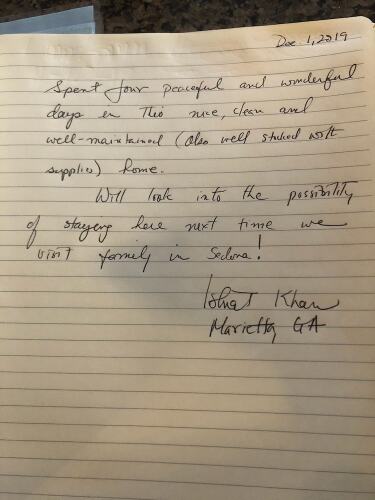 Dec. 1, 2019
Spent four peaceful and wonderful
days in this nice, clean and
well-maintained (also well stocked with
supplies) home.
Will look into the possibility
of staying here next time we
visit family in Sedona!
Ishrat Khan
Marietta, GA